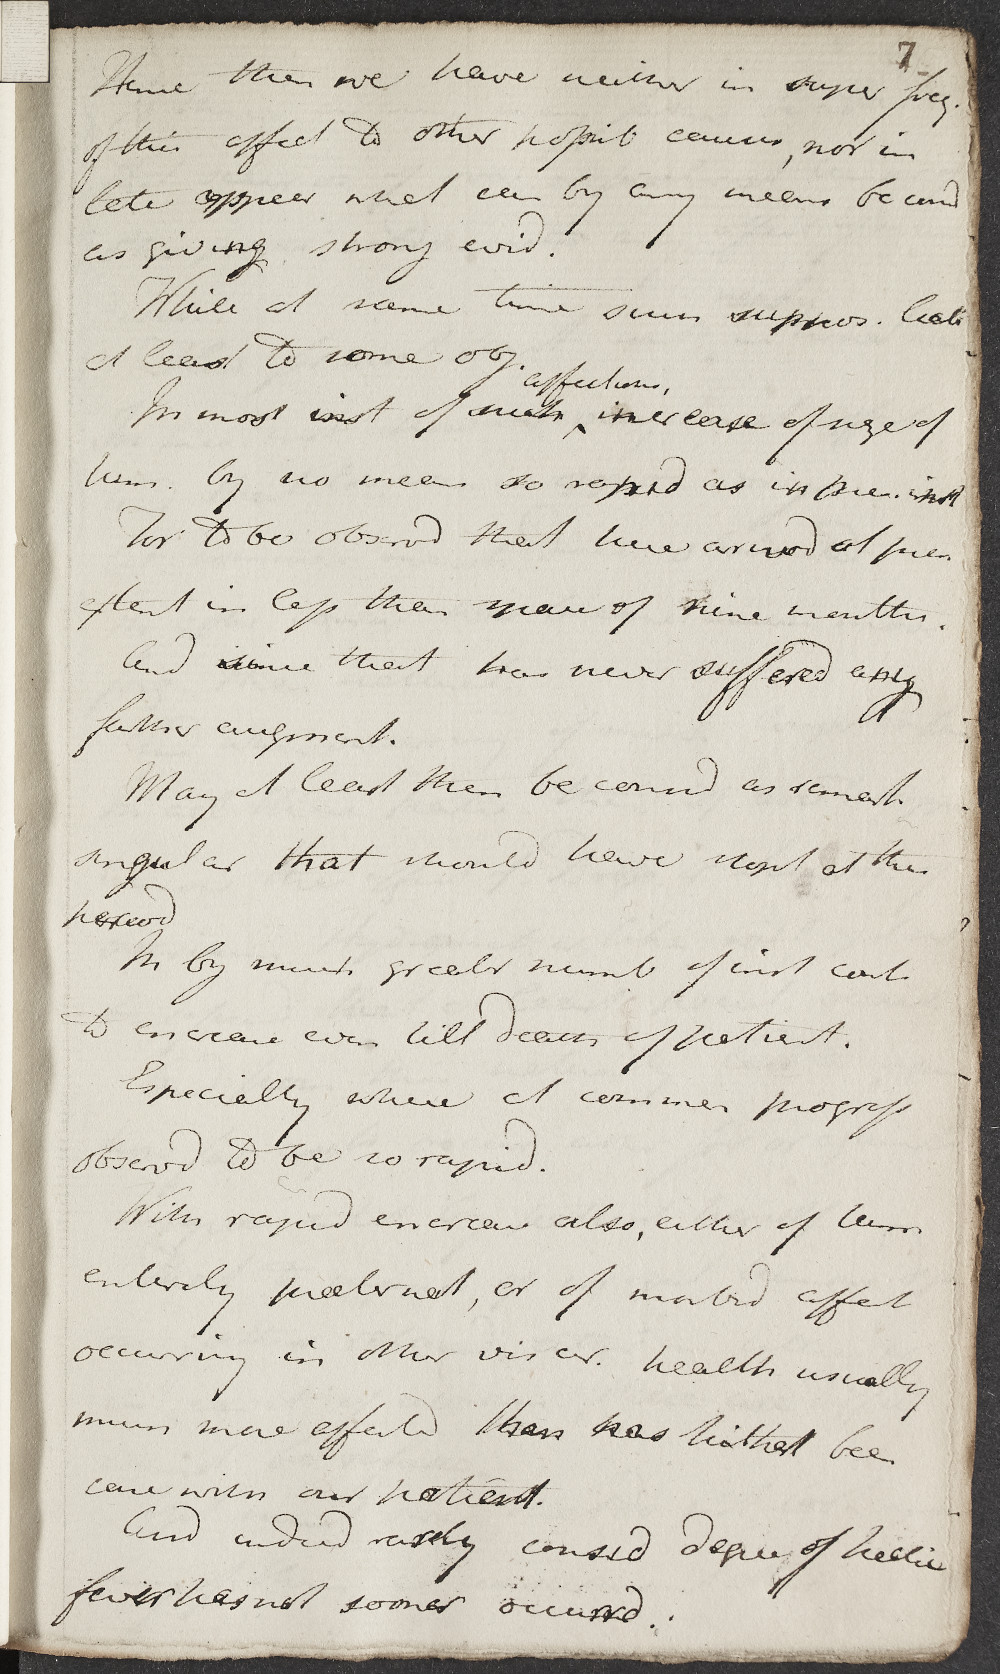 7
Hence then we have neither in super freq.
of this affect to other possib causes, nor in
late appear what can by any means be consd
as giving strong evid.
While at same time such suppos. liab
at least to some obj.
affections,
In most inst of such ^ increase of size of
tum. by no means so rapid as in pres. inst
For to be observd that here arrived at pres
extent in less than space of nine months.
And since that has never suffered any
further augment.
May at least then be considd as remark.
singular that should have stopt at this
period
In by much greater numb of inst cont
to encrease even till death of patient.
Especially where at commen progress
observd to be so rapid.
With rapid encrease also, either of tum
entirely preternat, or of morbid affect
occurring in other viscer. health usually
much more affected than has hithert been
case with our patient.
And indeed rarely considd degree of hectic
fever has not sooner occurred.